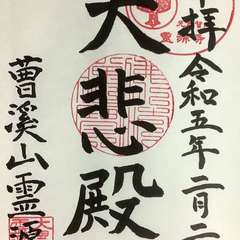 拝 令和五年二月二
大悲殿
曹溪山霊源